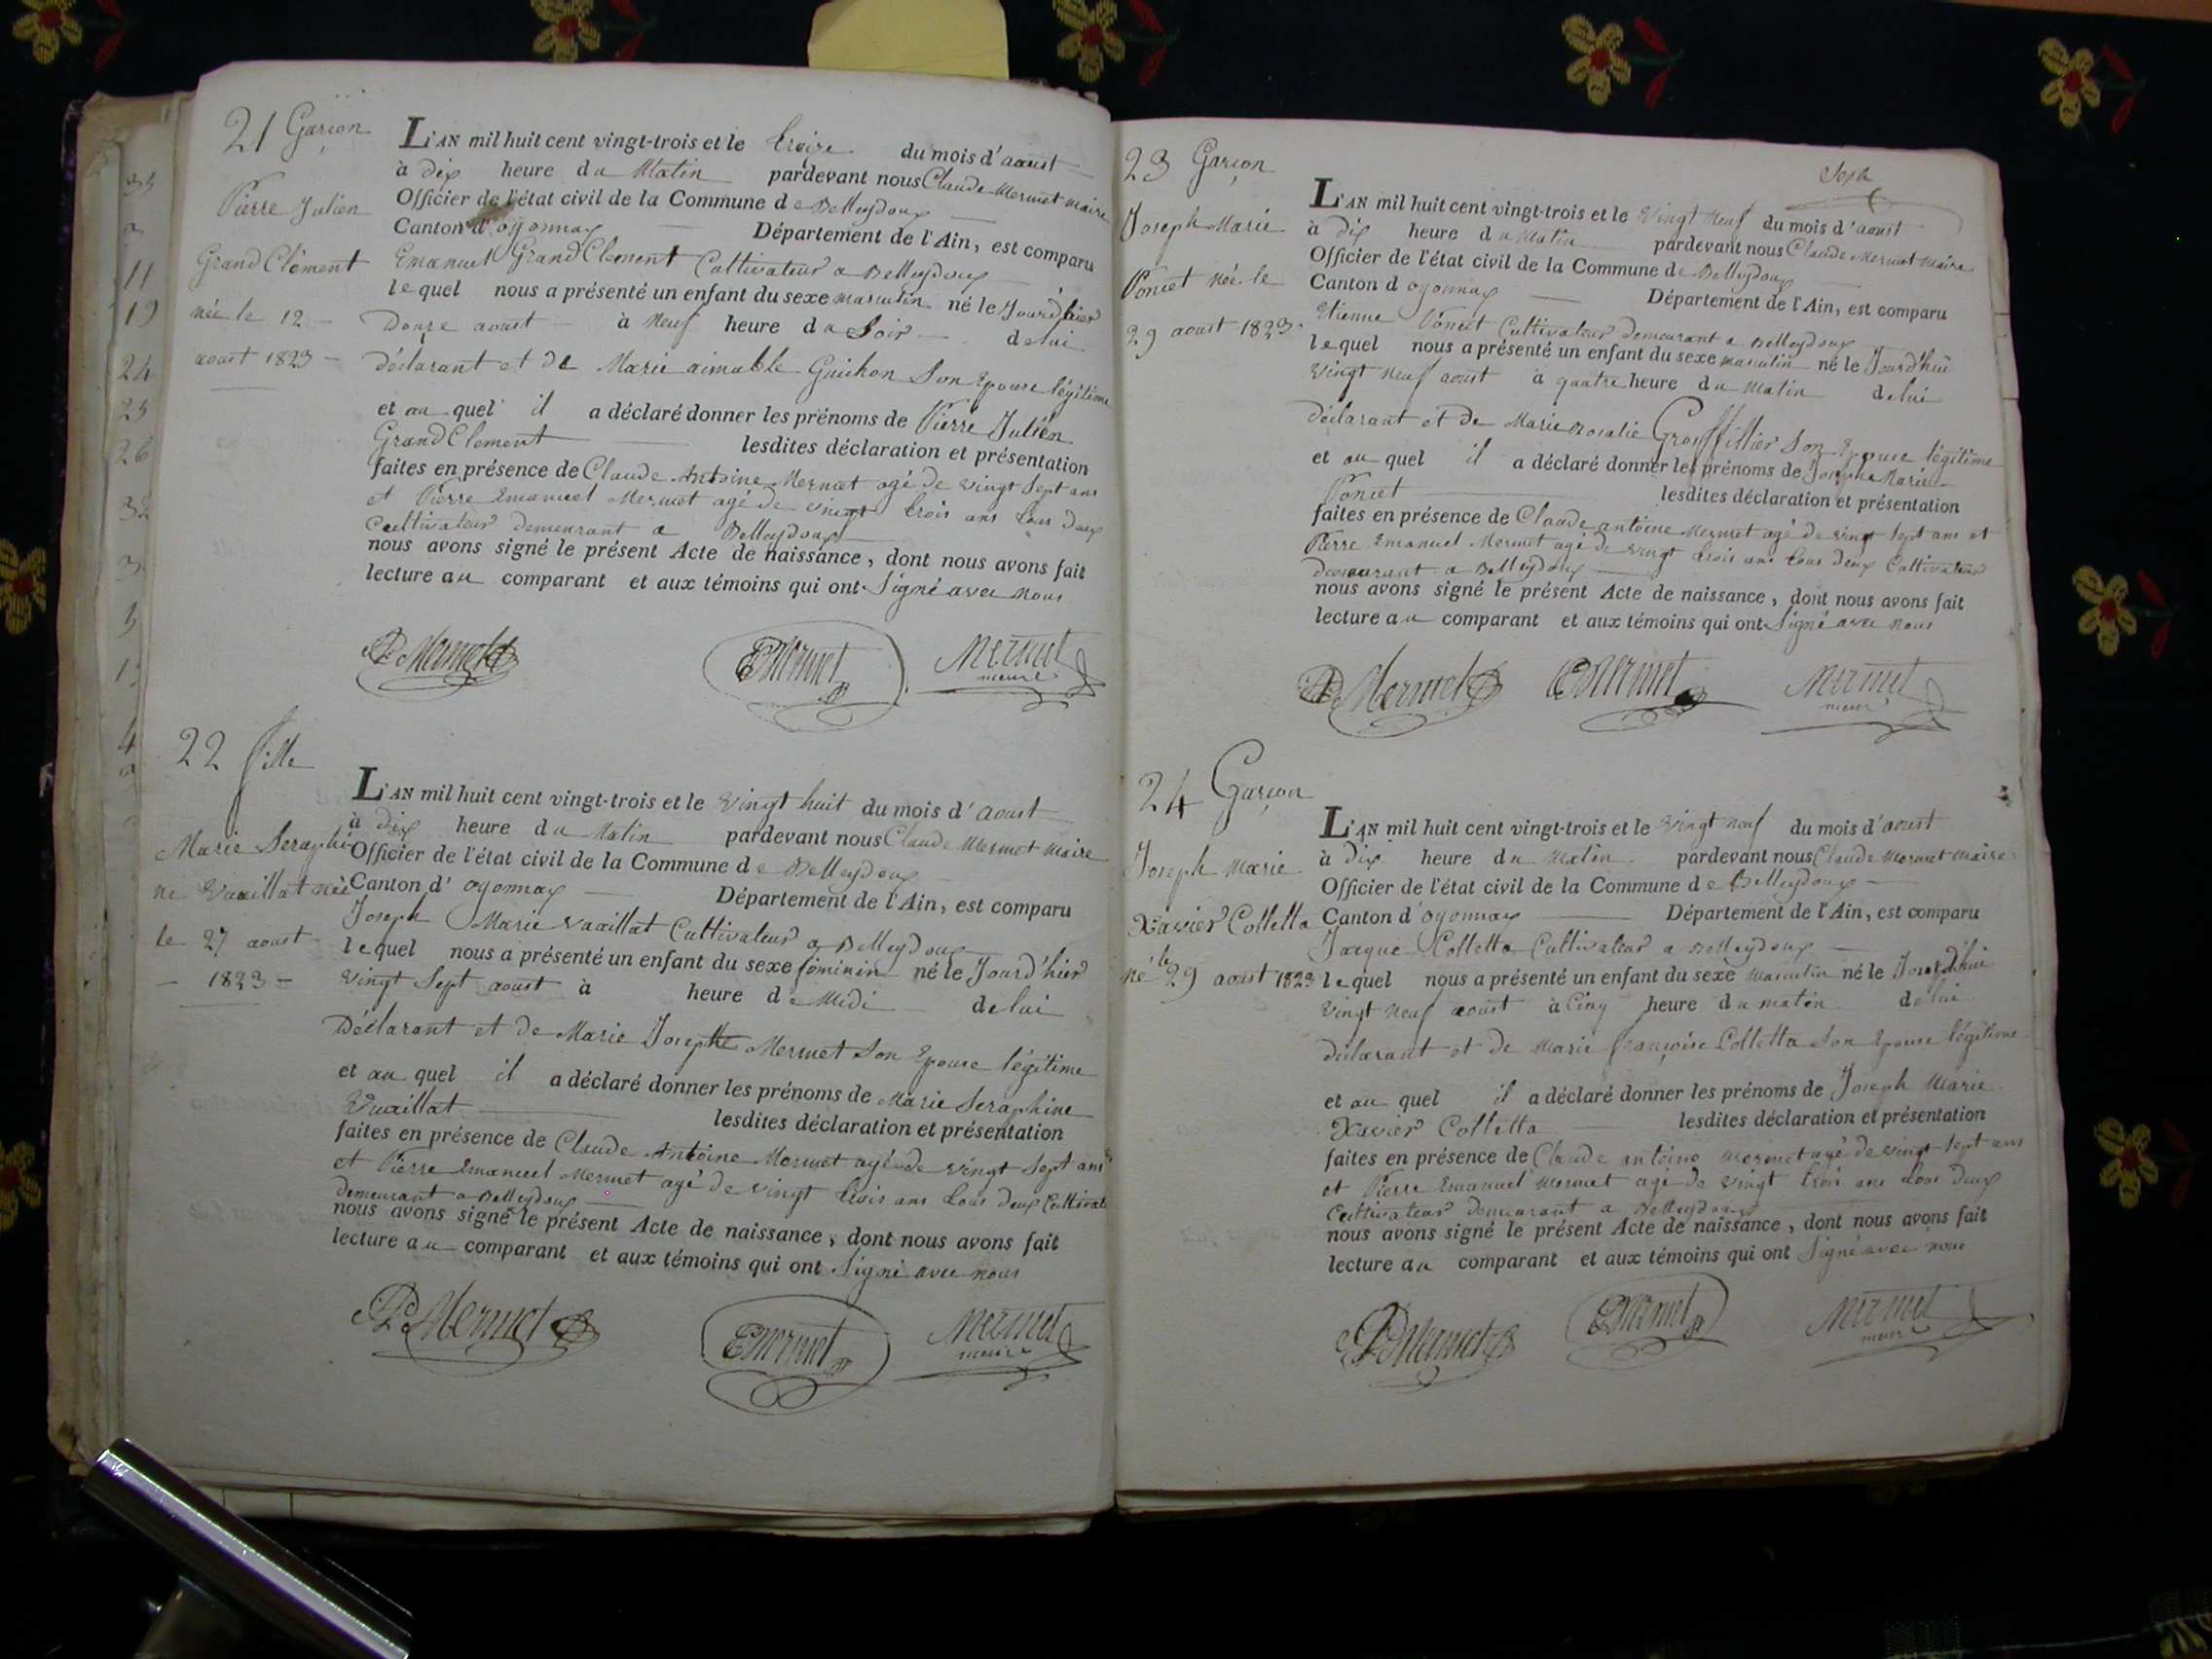 21 Garçon
Pierre Julien
Grand Clément
née le 12 -
aoust 1823 -
L'AN mil huit cent vingt-trois et le treize du mois d'aoust
à dix heure du Matin pardevant nous Claude Mermet maire
Officier de l'état civil de la Commune de Belleydoux
Canton d'oyonnax Département de l'Ain, est comparu
Emanuel GrandClement Cultivateur a Belleydoux
lequel nous a présenté un enfant du sexe masculin né le Jourd'hier
Douze aoust à neuf heure du Soir de lui
déclarant et de Marie aimable Guichon Son Epouse légitime
et au quel il a déclaré donner les prénoms de Pierre Julien
GrandClement lesdites déclaration et présentation
faites en présence de Claude Antoine Mermet agé de vingt Sept ans
et Pierre Emanuel Mermet agé de vingt trois ans tous deux
Cultivateur demeurant a Belleydoux
nous avons signé le présent Acte de naissance, dont nous avons fait
lecture au comparant et aux témoins qui ont Signé avec nous
Mermet EMermet Mermet
maire
22 fille
Marie Seraphi
ne Vuaillat née
le 27 aoust
- 1823 -
L'AN mil huit cent vingt-trois et le vingt huit du mois d'aoust
à dix heure du Matin pardevant nous Claude Mermet maire
Officier de l'état civil de la Commune de Belleydoux
Canton d'oyonnax Département de l'Ain, est comparu
Joseph Marie Vuaillat Cultivateur a Belleydoux
lequel nous a présenté un enfant du sexe féminin né le Jourd'hier
vingt Sept aoust à heure de Midi de lui
Déclarant et de Marie Josephte Mermet Son Epouse légitime
et au quel il a déclaré donner les prénoms de Marie Seraphine
Vuaillat lesdites déclaration et présentation
faites en présence de Claude Antoine Mermet agé de vingt Sept ans
et Pierre Emanuel Mermet agé de vingt trois ans tous deux Cultivate
demeurant a Belleydoux
nous avons signé le présent Acte de naissance, dont nous avons fait
lecture au comparant et aux témoins qui ont Signé avec nous
Mermet EMermet Mermet
maire
23 Garçon
Joseph Marie
Poncet née le
29 aoust 1823.
L'AN mil huit cent vingt-trois et le vingt neuf du mois d'aoust
à dix heure du Matin pardevant nous Claude Mermet maire
Officier de l'état civil de la Commune de Belleydoux
Canton d oyonnax Département de l'Ain, est comparu
Etienne Poncet Cultivateur demeurant a Belleydoux
lequel nous a présenté un enfant du sexe masculin né le Jourd'hui
vingt neuf aoust à quatre heure du Matin de lui
déclarant et de Marie Rosalie Grosfillier Son Epouse légitime
et au quel il a déclaré donner les prénoms de Joseph Marie
Poncet lesdites déclaration et présentation
faites en présence de Claude antoine Mermet agé de vingt Sept ans et
Pierre Emanuel Mermet agé de vingt trois ans tous deux Cultivateur
demeurant a Belleydoux
nous avons signé le présent Acte de naissance, dont nous avons fait
lecture au comparant et aux témoins qui ont Signé avec nous
Mermet EMermet Mermet
maire
24 Garçon
Joseph Marie
Xavier Colletta
né le 29 aoust 1823
L'AN mil huit cent vingt-trois et le vingt neuf du mois d'aoust
à dix heure du Matin pardevant nous Claude Mermet maire
Officier de l'état civil de la Commune de Belleydoux
Canton d'oyonnax Département de l'Ain, est comparu
Jacque Colletta Cultivateur a Belleydoux
lequel nous a présenté un enfant du sexe masculin né le Jourd'hui
vingt neuf aoust à Cinq heure du matin de lui
déclarant et de Marie françoise Colletta Son Epouse légitime
et au quel il a déclaré donner les prénoms de Joseph Marie
Xavier Colletta lesdites déclaration et présentation
faites en présence de Claude antoine Mermet agé de vingt-sept ans
et Pierre Emanuel Mermet agé de vingt trois ans tous Deux
Cultivateur demeurant a Belleydoux
nous avons signé le présent Acte de naissance, dont nous avons fait
lecture au comparant et aux témoins qui ont Signé avec nous
Mermet EMermet Mermet
maire